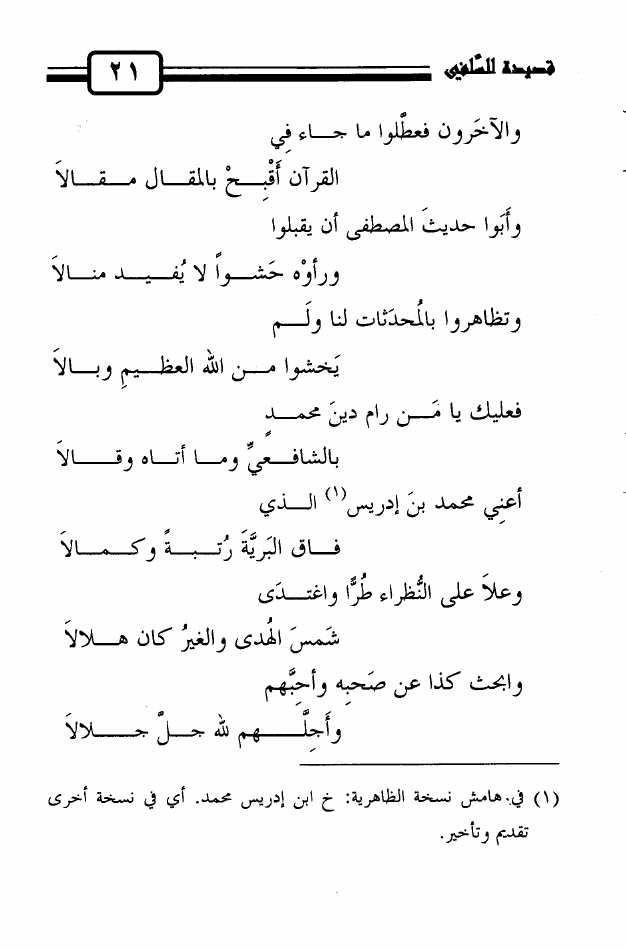 قصيدة للسلفيي ٢١
والآخَرون فعطَّلوا ما جـــاء فِي
القرآن أَقْبِـــحْ بالمقـــال مـــقـــالاَ
وأَبَوا حديثَ المصطفى أن يقبلوا
ورأوْه حَشـــواً لا يُفـــيـــد منـــالاَ
وتظاهروا بالمُحدَثات لنا ولَـــم
يَخشوا مـــن الله العظـــيمِ وبـــالاَ
فعليك يا مَـــن رام دينَ محمـــدٍ
بالشافـــعيِّ ومـــا أتـــاه وقـــالاَ
أعنِي محمد بنَ إدريس(١) الـــذي
فـــاق البَريَّةَ رُتـــبـــةً وكـــمـــالاَ
وعلاَ على النُّظراء طُرًّا واغتـــدَى
شَمسَ الهُدى والغيرُ كان هـــلالاَ
وابحث كذا عن صَحبِه وأحِبَّهم
وأَجِلَّـــهم لله جـــلَّ جـــلالاَ
(١) في هامش نسخة الظاهرية: خ ابن إدريس محمد. أي في نسخة أخرى
تقديم وتأخير.